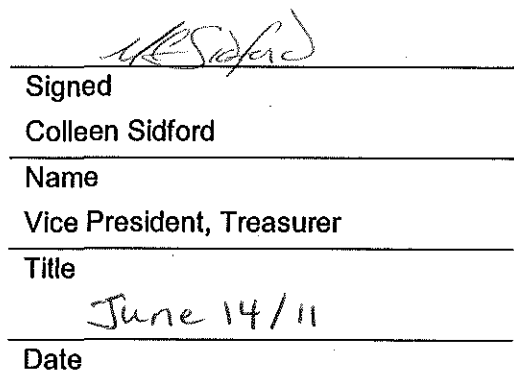 Sidford
Signed
Colleen Sidford
Name
Vice President, Treasurer
Title
June 14/11
Date